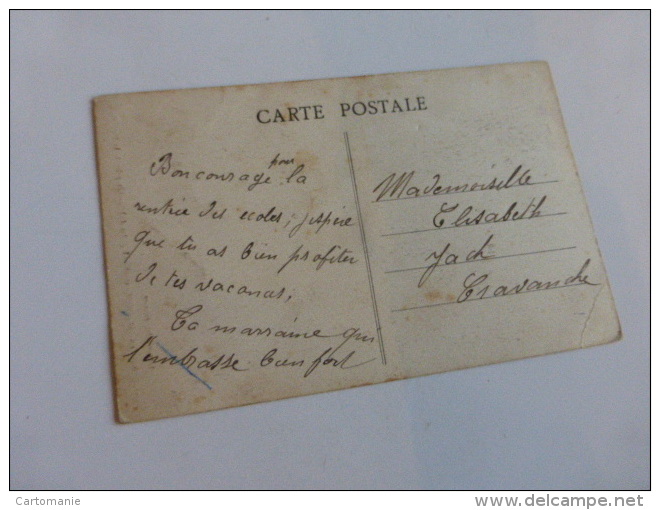 CARTE POSTALE
Bon courage pour la
rentrée des ecoles, j'espère
que tu as bien profiter
de tes vacanas,
Ta marraine qui
t'embrasse bien fort
Mademoiselle
Elisabeth
Jack
Cravanche
Cartomanie
www.delcampe.net